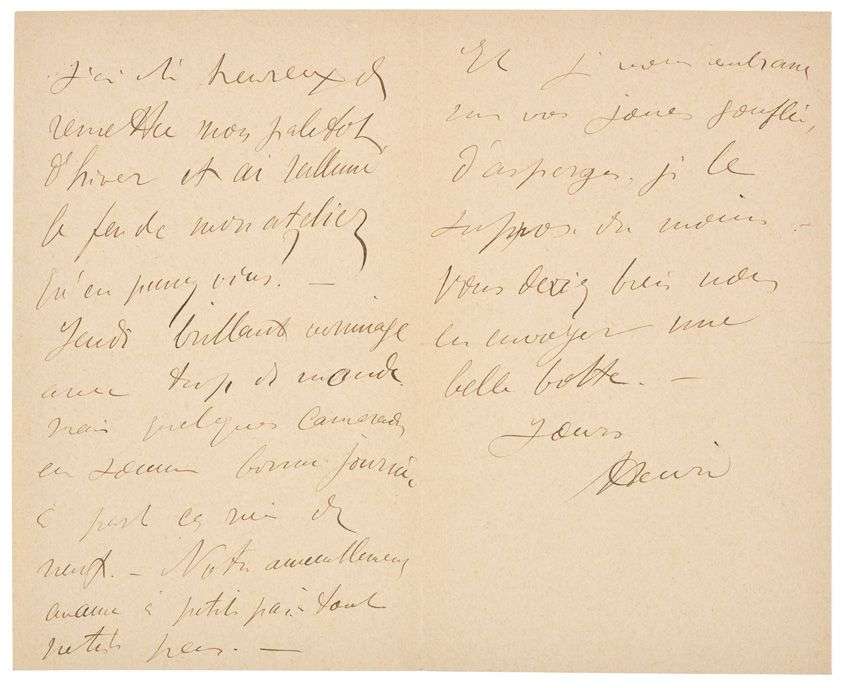 J'ai été heureux de
remettre mon paletot
d'hiver et ai rallumé
le feu de mon atelier
Qu'en pensez vous. —
Jeudi brillant vernissage
avec trop de monde
mais quelques camarades
en somme bonne journée
à part ça rien de
neuf. — Notre ameublement
avance à petits pas tout
petits pas. —
Et je vous embrasse
sur vos joues gonflées
d'asperges. je le
suppose du moins —
Vous devriez bien nous
en envoyer une
belle botte. —
Yours
Henri